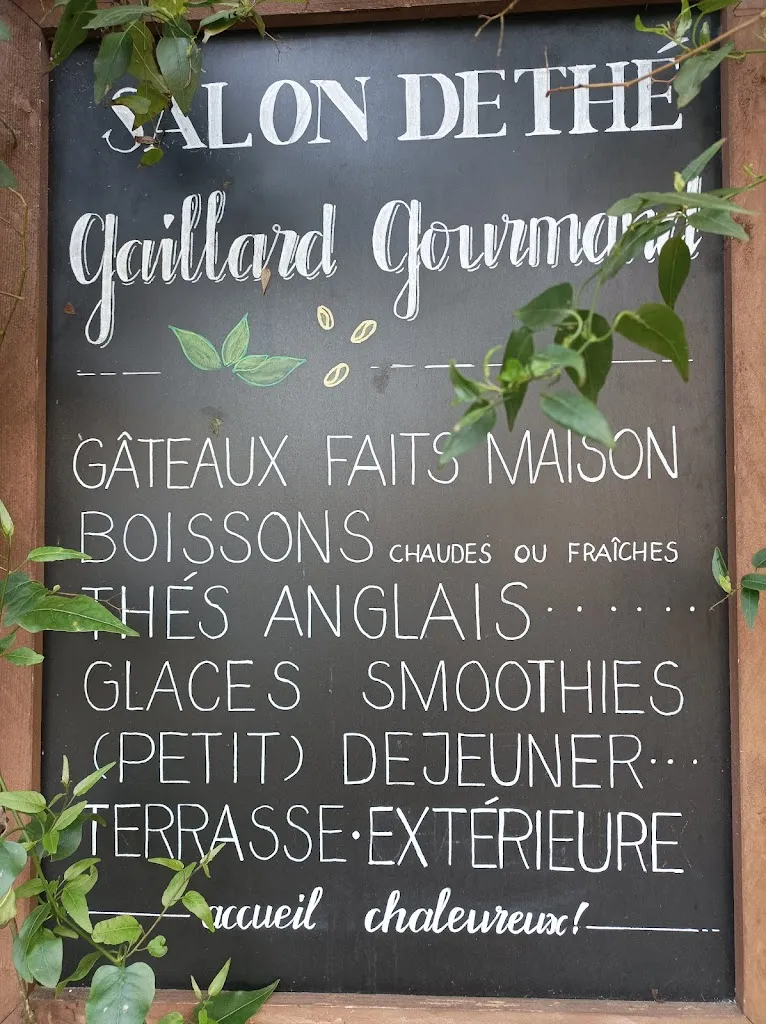 SALON DE THÉ
Gaillard Gourmand
GÂTEAUX FAITS MAISON
BOISSONS CHAUDES OU FRAÎCHES
THÉS ANGLAIS.......
GLACES SMOOTHIES
(PETIT) DEJEUNER...
TERRASSE·EXTÉRIEURE
accueil chaleureux!